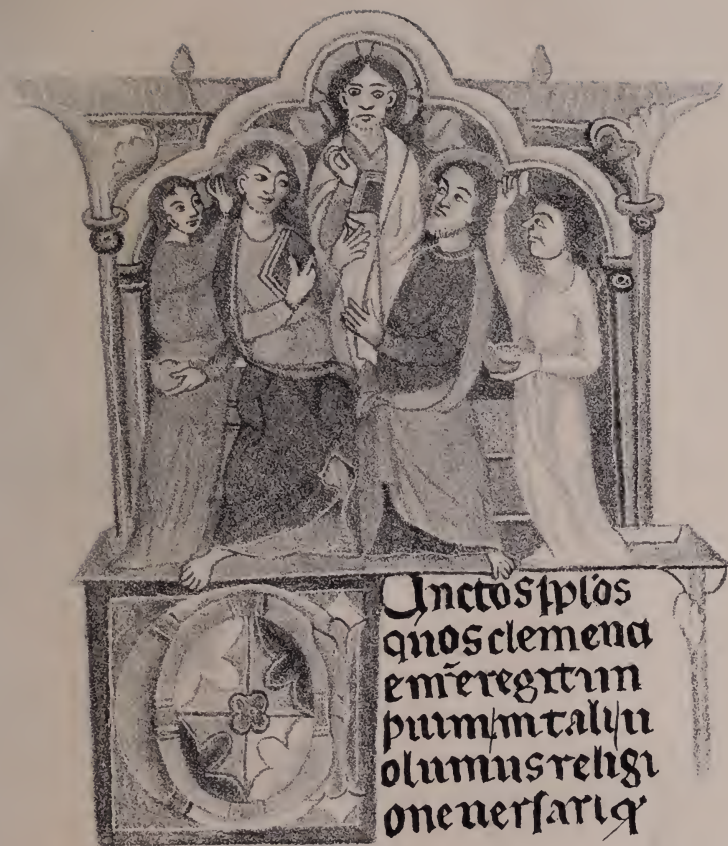 CUnctoS pplos
quos clemenci
e nr̄e regit im
pium in tali u
olumus religi
one uersari q̄